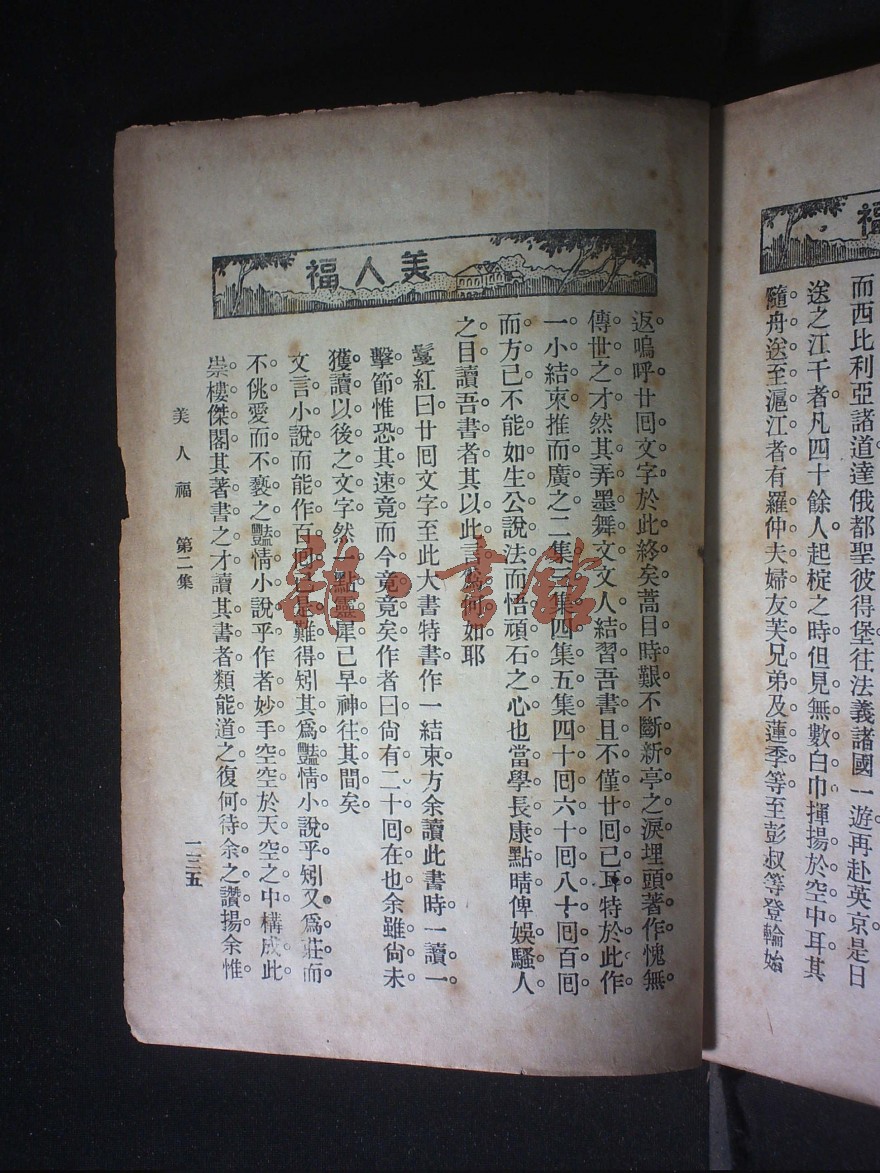 福
而西比利亞諸道達俄都聖彼得堡往法義諸國一遊再赴英京是日
送之江干者凡四十餘人起椗之時但見無數白巾揮揚於空中耳其
隨舟送至滬江者有羅仲夫婦友芙兄弟及蓮季等至彭叔等登輪始
美人福
返嗚呼廿回文字於此終矣蒿目時艱不斷新亭之淚埋頭著作愧無
傳世之才然其弄墨舞文文人結習吾書且不僅廿回已耳特於此作
一小結束推而廣之二集三集四集五集四十回六十回八十回百回
而方已不能如生公說法而悟頑石之心也當學長康點睛俾娛騷人
之目讀吾書者其以此言爲何如耶
鬘紅曰廿回文字至此大書特書作一結束方余讀此書時一讀一
擊節惟恐其速竟而今竟竟矣作者曰尙有二十回在也余雖尙未
獲讀以後之文字然一點靈犀已早神往其間矣
文言小說而能作百回已是難得矧其爲豔情小說乎矧又爲莊而
不佻愛而不褻之豔情小說乎作者妙手空空於天空之中構成此
崇樓傑閣其著書之才讀其書者類能道之復何待余之讚揚余惟
美人福 第二集
一三五
雜·書館